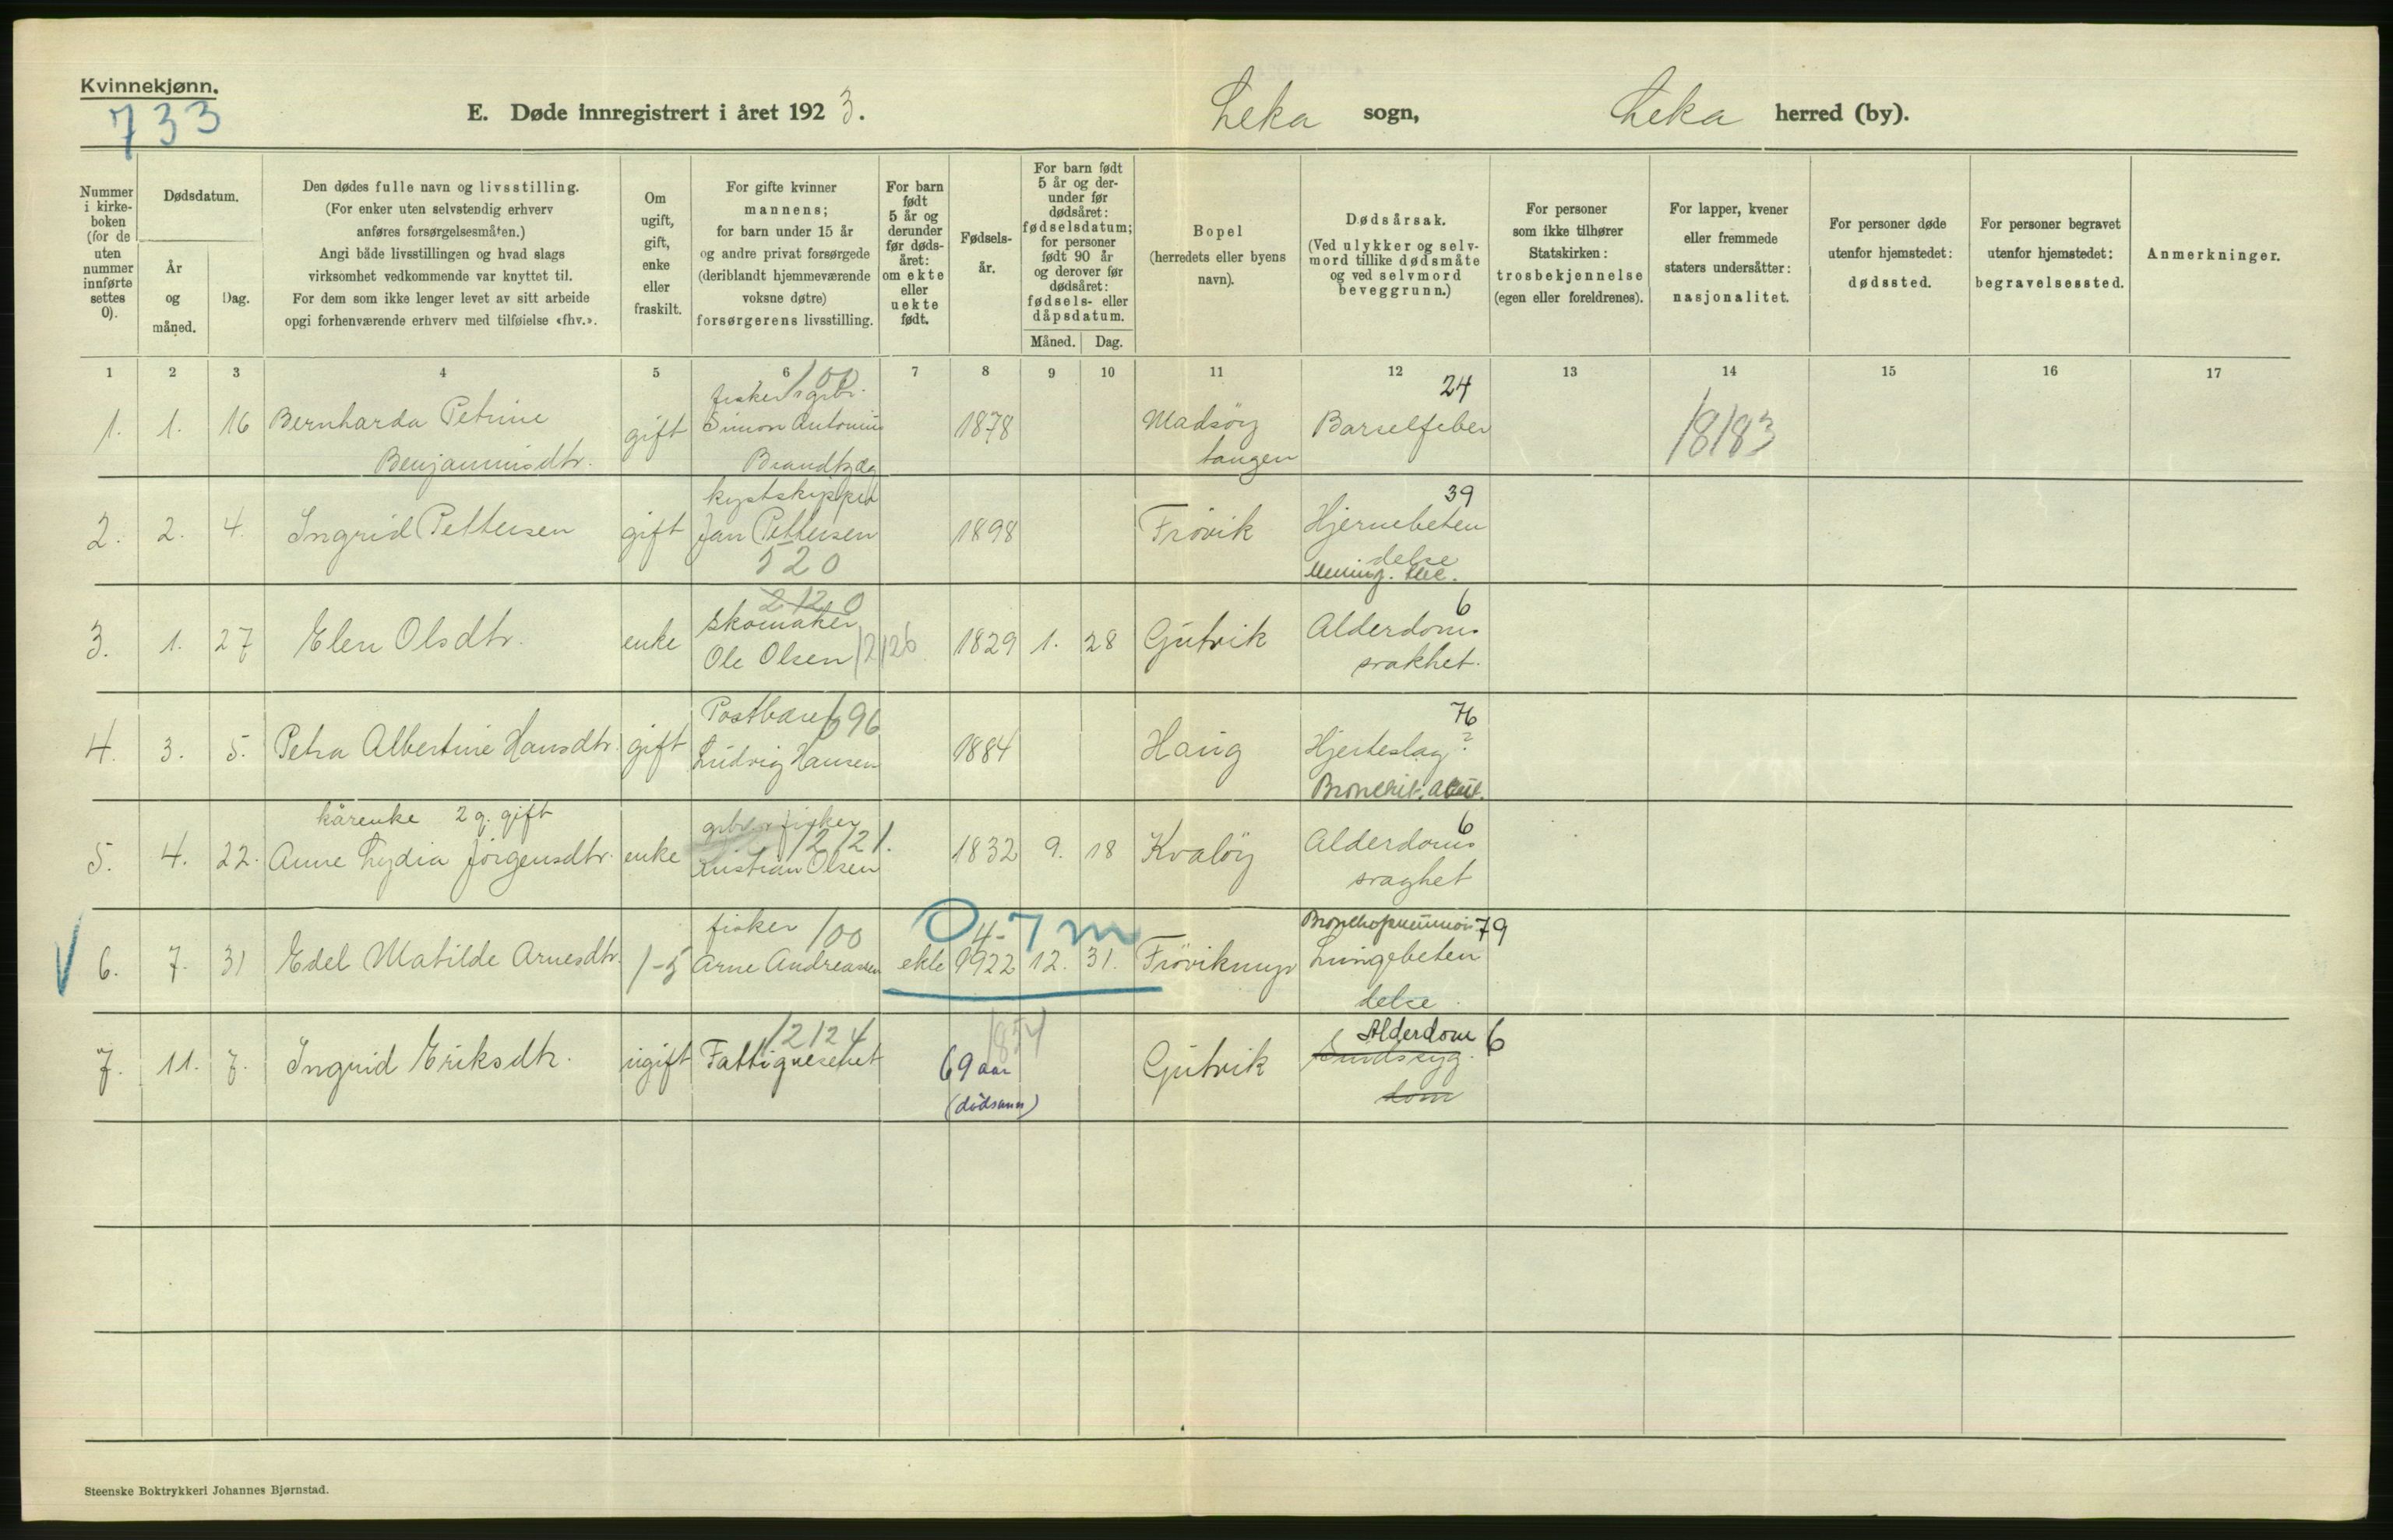 Kvinnekjønn.
733
E. Døde innregistrert i året 1923.
Leka sogn,
Leka herred (by).
Nummer i kirke- boken (for de uten nummer innførte settes 0).
Dødsdatum.
År og måned.
Dag.
Den dødes fulle navn og livsstilling.
(For enker uten selvstendig erhverv
anføres forsørgelsesmåten.)
Angi både livsstillingen og hvad slags
virksomhet vedkommende var knyttet til.
For dem som ikke lenger levet av sitt arbeide
opgi forhenværende erhverv med tilføielse «fhv.».
Om ugift, gift, enke eller fraskilt.
For gifte kvinner
mannens;
for barn under 15 år
og andre privat forsørgede
(deriblandt hjemmeværende
voksne døtre)
forsørgerens livsstilling.
For barn født 5 år og derunder før døds- året: om ekte eller uekte født.
Fødsels- år.
For barn født
5 år og der-
under før
dødsåret:
fødselsdatum;
for personer
født 90 år
og derover før
dødsåret:
fødsels- eller
dåpsdatum.
Måned.
Dag.
Bopel
(herredets eller byens
navn).
Dødsårsak.
(Ved ulykker og selv-
mord tillike dødsmåte
og ved selvmord
beveggrunn.)
For personer
som ikke tilhører
Statskirken:
trosbekjennelse
(egen eller foreldrenes).
For lapper, kvener
eller fremmede
staters undersåtter:
nasjonalitet.
For personer døde
utenfor hjemstedet:
dødssted.
For personer begravet
utenfor hjemstedet:
begravelsessted.
Anmerkninger.
1 2 3 4 5 6 7 8 9 10 11 12 13 14 15 16 17
100 24
fisker gbr.
1. 1. 16 Bernharda Petrine gift Simon Antonius 1878 Madsöy Barselfeber 18183
Benjaminsdtr. Brandtzæg tangen
kystskipper 39
2. 2. 4. Ingrid Pettersen gift Jan Pettersen 1898 Frövik Hjernebeten
520 delse
mening.
2120 6
Skomaker
3. 1. 27 Elen Olsdtr. enke Ole Olsen 12126 1829 1. 28 Gutvik Alderdoms
svakhet.
Postbærer 696 76
4. 3. 5. Petra Albertine Hansdtr. gift Ludvig Hansen 1884 Haug Hjerteslag ?
Bronchit. acut.
kårenke 2 g. gift gbr. fisker 12121. 6
5. 4. 22. Anne Lydia Jörgensdtr. enke Kristian Olsen 1832 9. 18 Kvalöy Alderdoms
svaghet
fisker 100 0 4-7 m Bronchopneumoni 79
6. 7. 31 Edel Matilde Arnesdtr. 1-5 Arne Andreassen ekte 1922 12. 31. Frövikmyr Lungebeten
delse.
12124 1854 Alderdom 6
7. 11. 7. Ingrid Eriksdtr. ugift Fattigvesenet 69 aar Gutvik Sindssyg-
(dödsann) dom
Steenske Boktrykkeri Johannes Bjørnstad.